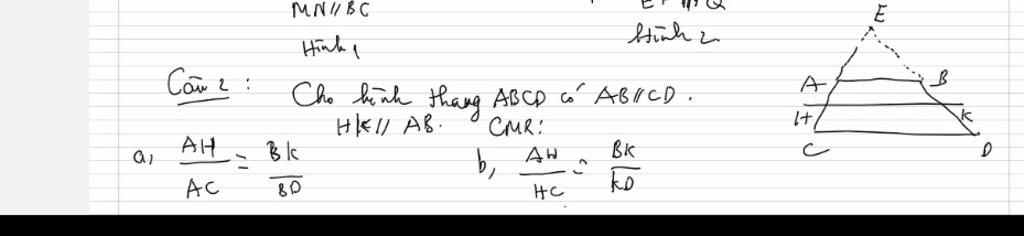 MN//BC
Hình 1
Hình 2
Câu 2 :
Cho hình thang ABCD có AB//CD.
HK // AB. CMR:
a, AH/AC = BK/BD
b, AH/HC = BK/KD
E
A B
H K
C D